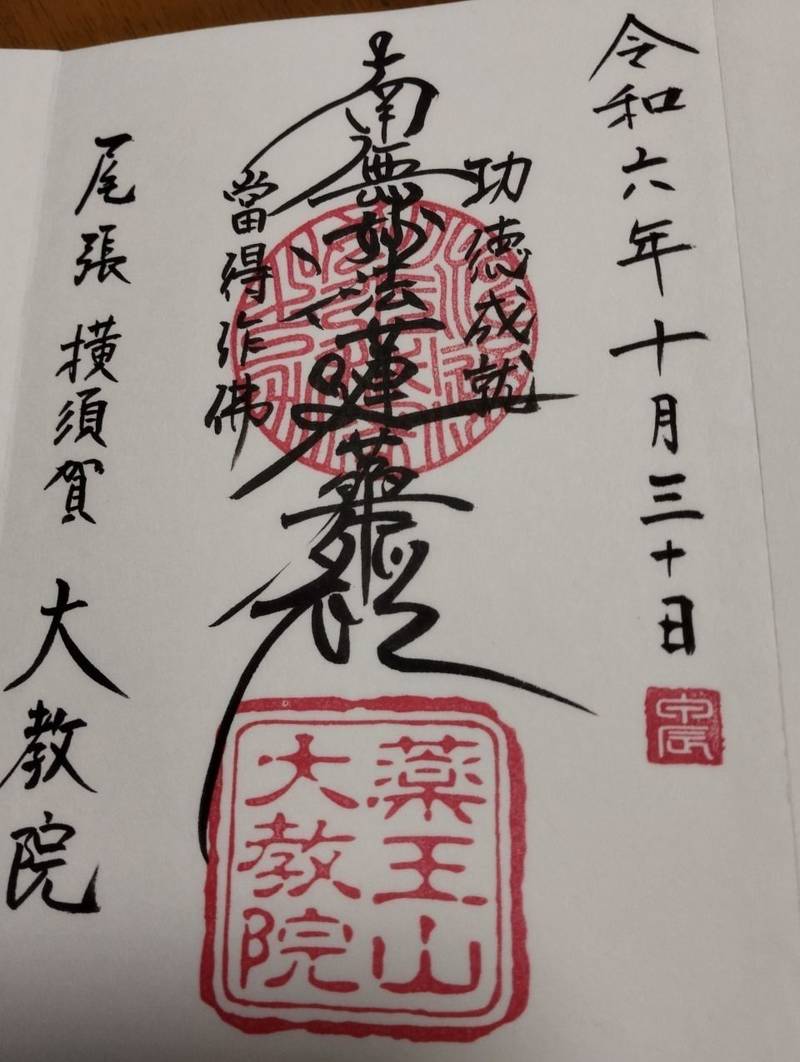 令和六年十月三十日
功德成就
南無妙法蓮華經
當得作佛
尾張横須賀 大教院
薬王山
大教院